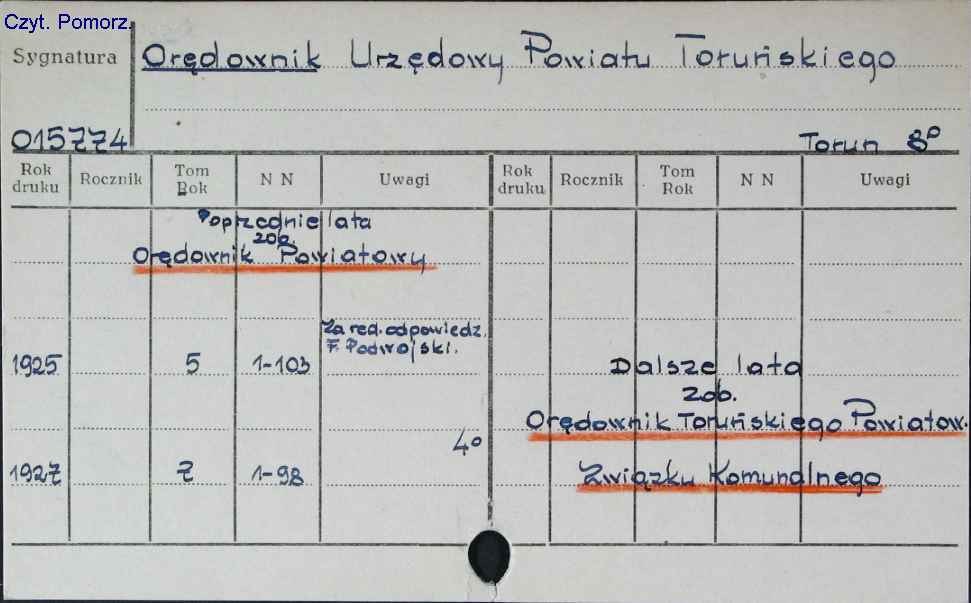 Czyt. Pomorz.
Sygnatura Orędownik Urzędowy Powiatu Toruńskiego
015774 Toruń 8°
Rok druku Rocznik Tom Rok N N Uwagi Rok druku Rocznik Tom Rok N N Uwagi
Poprzednie lata
zob.
Orędownik Powiatowy
Za red. odpowiedz.
F. Podwojski.
1925 5 1-103
4°
1927 7 1-98
Dalsze lata
zob.
Orędownik Toruńskiego Powiatow.
Związku Komunalnego